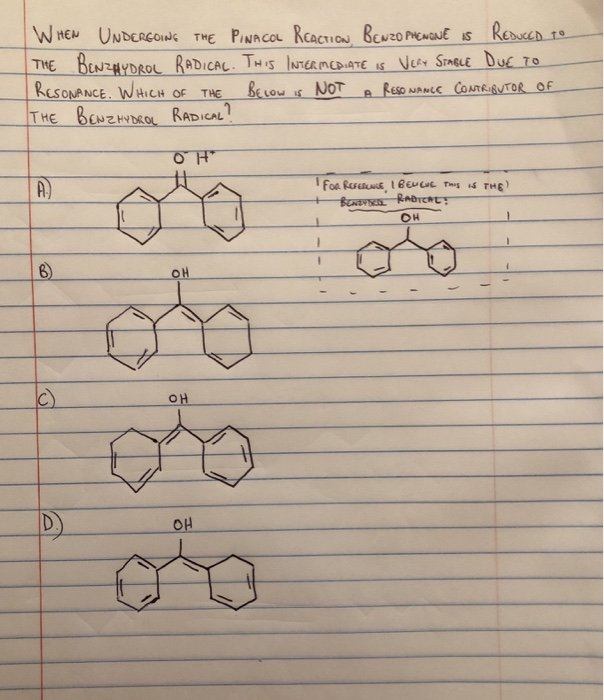 WHEN UNDERGOING THE PINACOL REACTION, BENZOPHENONE IS REDUCED TO
THE BENZHYDROL RADICAL. THIS INTERMEDIATE IS VERY STABLE DUE TO
RESONANCE. WHICH OF THE BELOW IS NOT A RESONANCE CONTRIBUTOR OF
THE BENZHYDROL RADICAL?
A.)
O⁻ H⁺
FOR REFERENCE, I BELIEVE THIS IS THE
RADICAL:
OH
B)
OH
C)
OH
D.)
OH